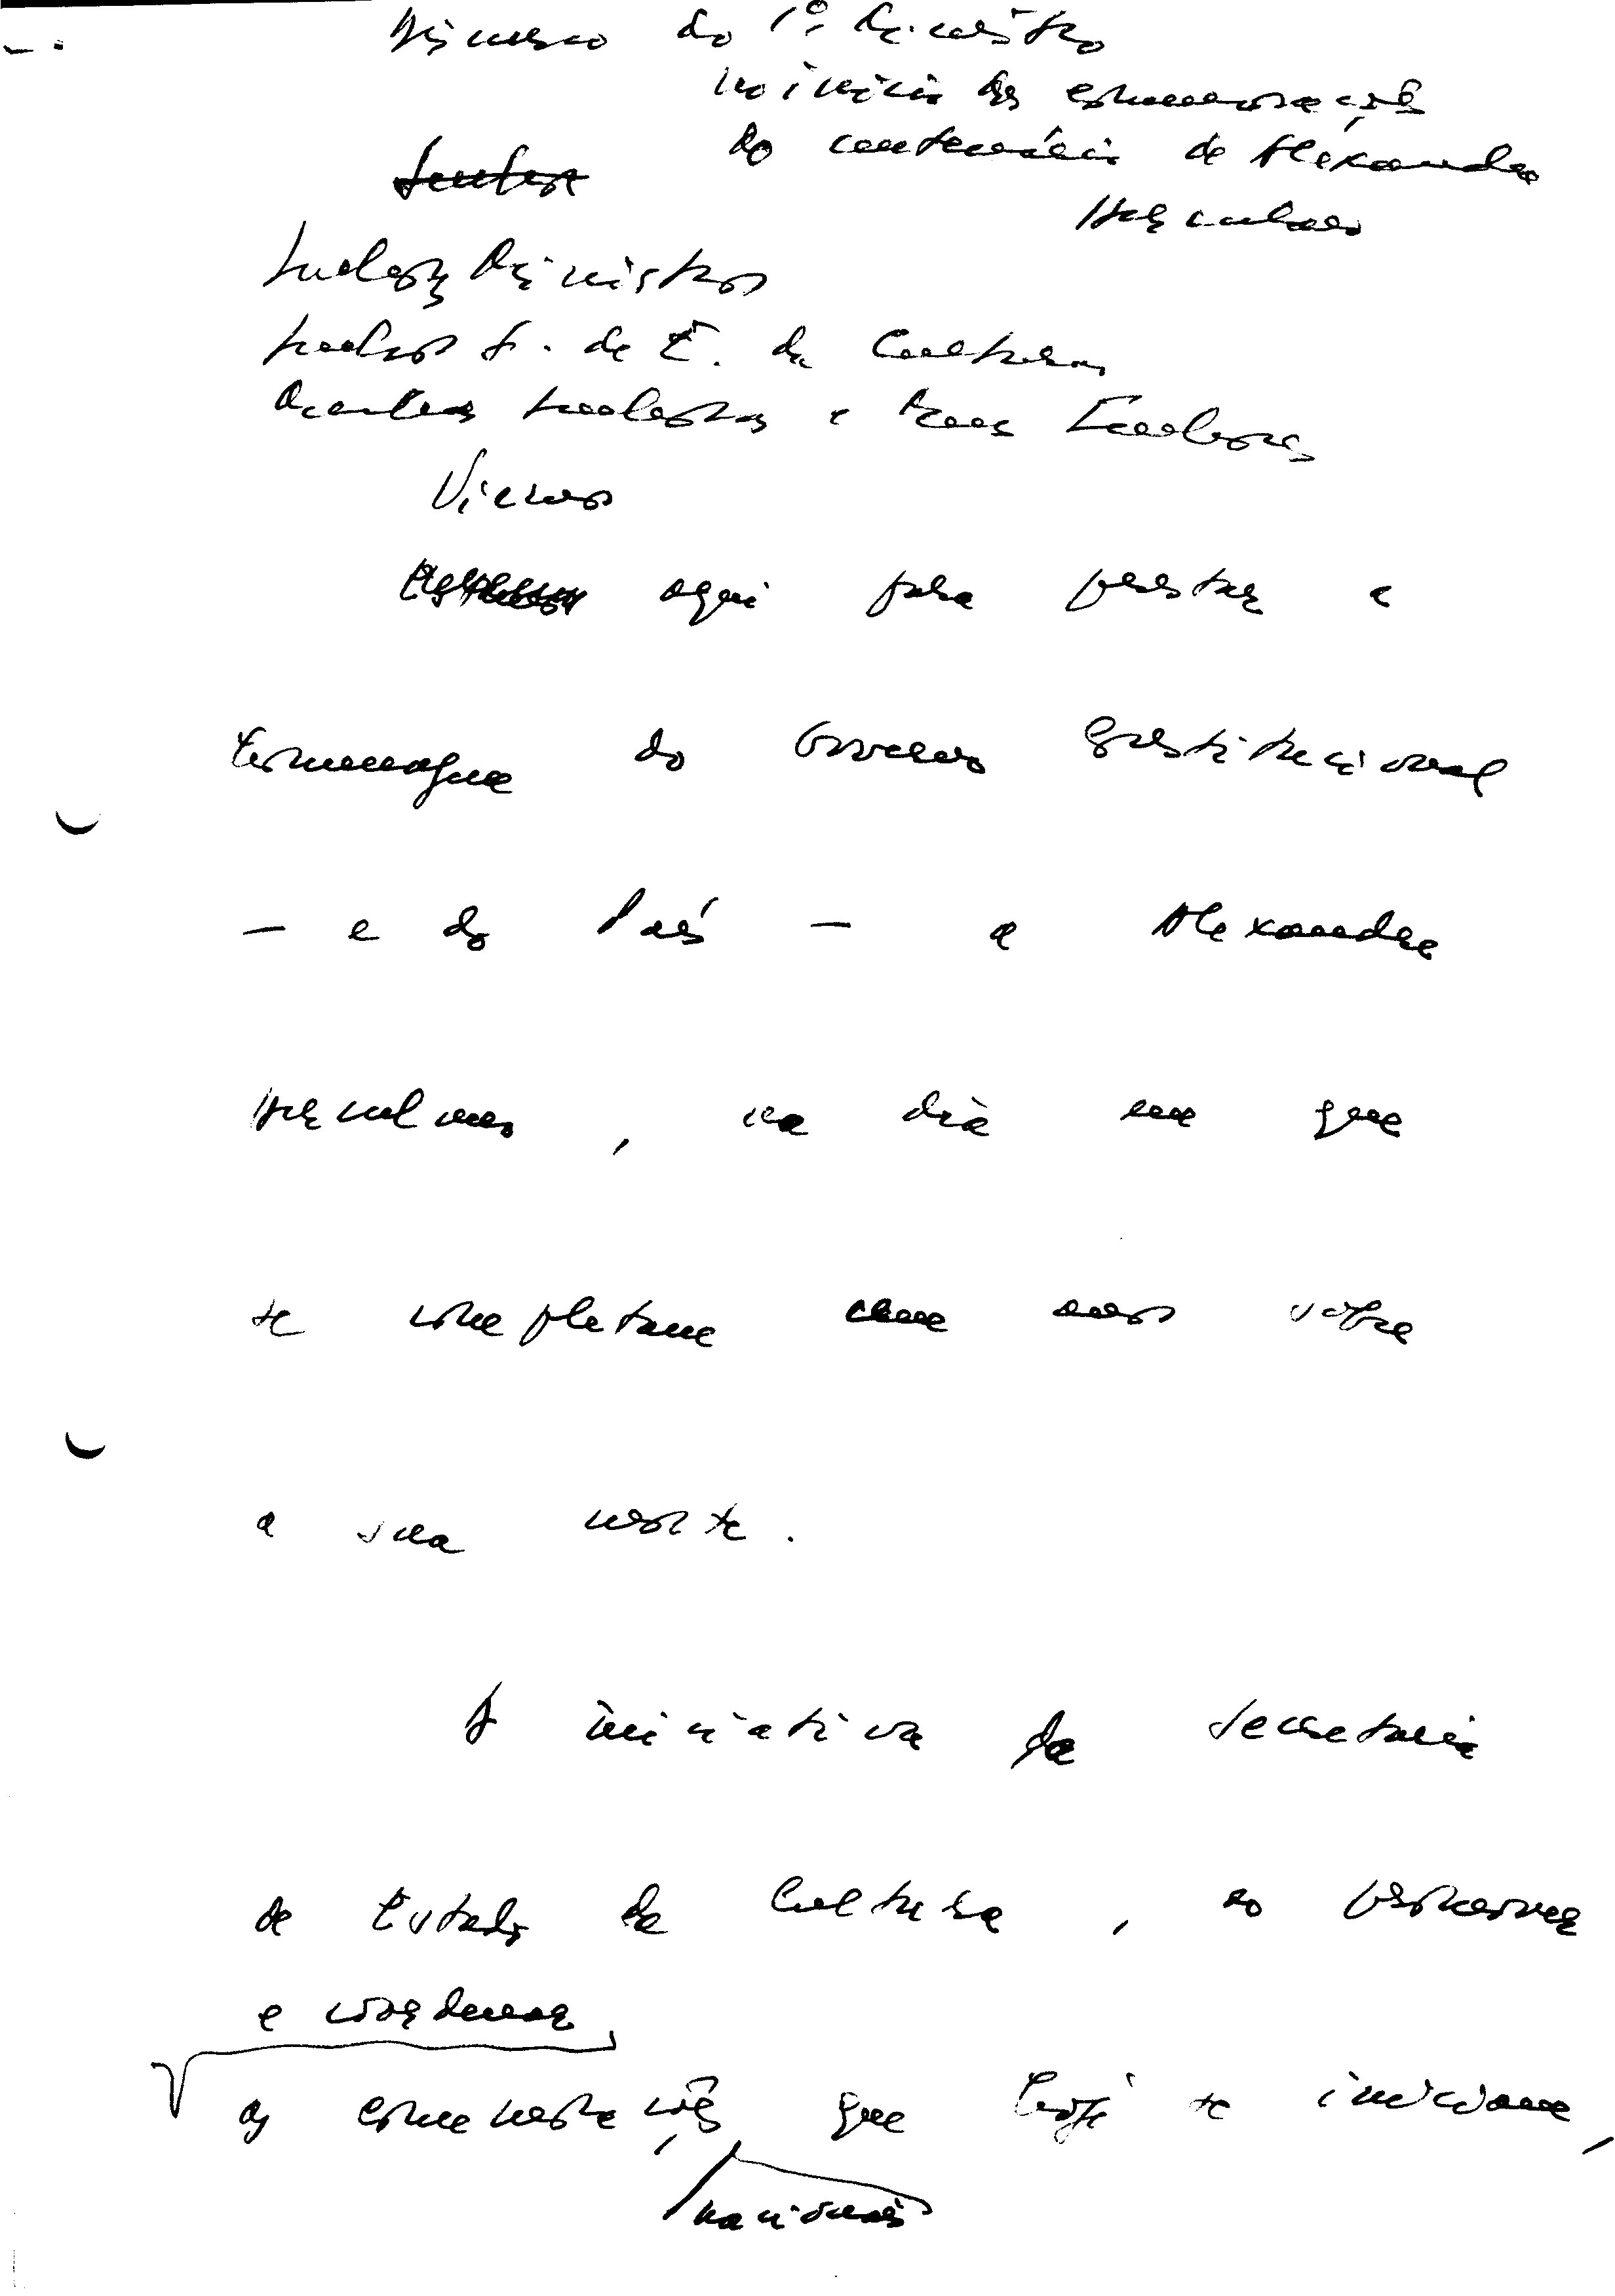 Discurso do 1º Ministro
no início das comemorações
do centenário de Alexandre
Herculano
Senhor Ministro
Senhor S. de E. da Cultura
Minhas Senhoras e Meus Senhores
Viemos
aqui para prestar a
homenagem do Governo Constitucional
— e do País — a Alexandre
Herculano, no dia em que
se completam cem anos sobre
a sua morte.
A iniciativa da Secretaria
de Estado da Cultura, ao promover
e coordenar
as comemorações que hoje se iniciam,
nacionais